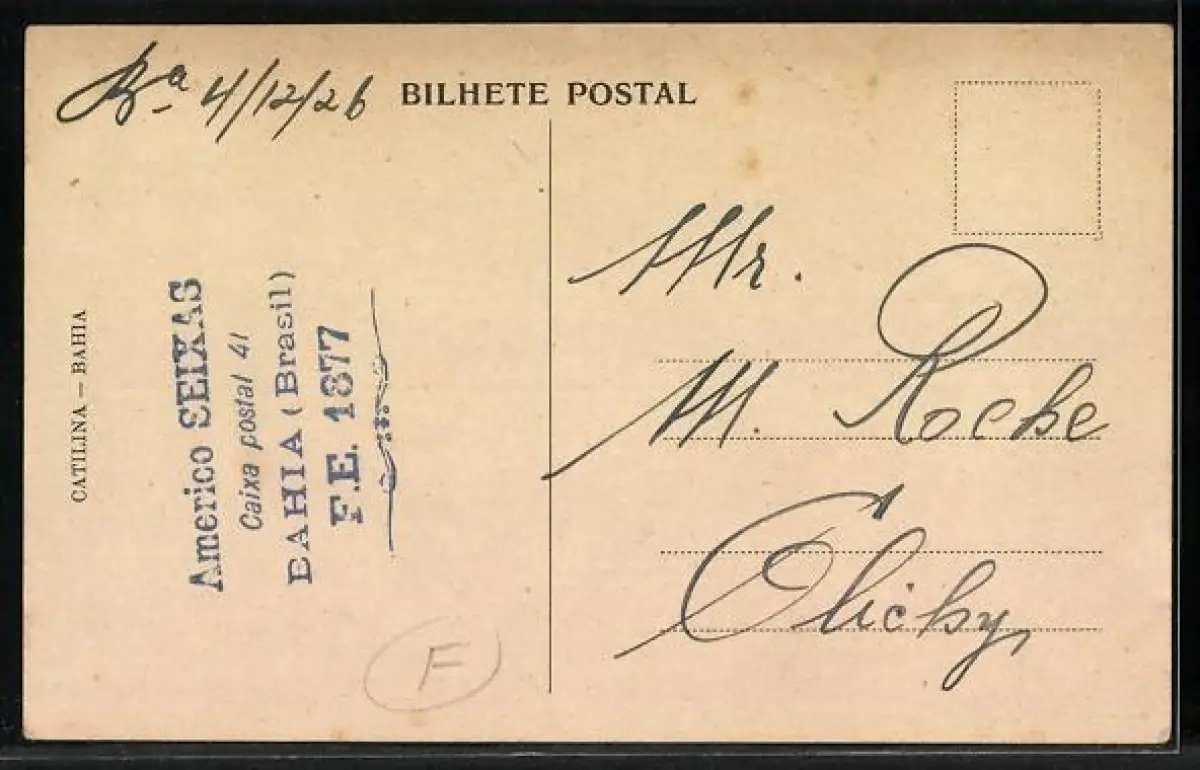 Bª 4/12/26
BILHETE POSTAL
CATILINA — BAHIA
Americo SEIXAS
Caixa postal 41
BAHIA (Brasil)
F.E. 1877
Mr.
M. Roche
Clichy
F